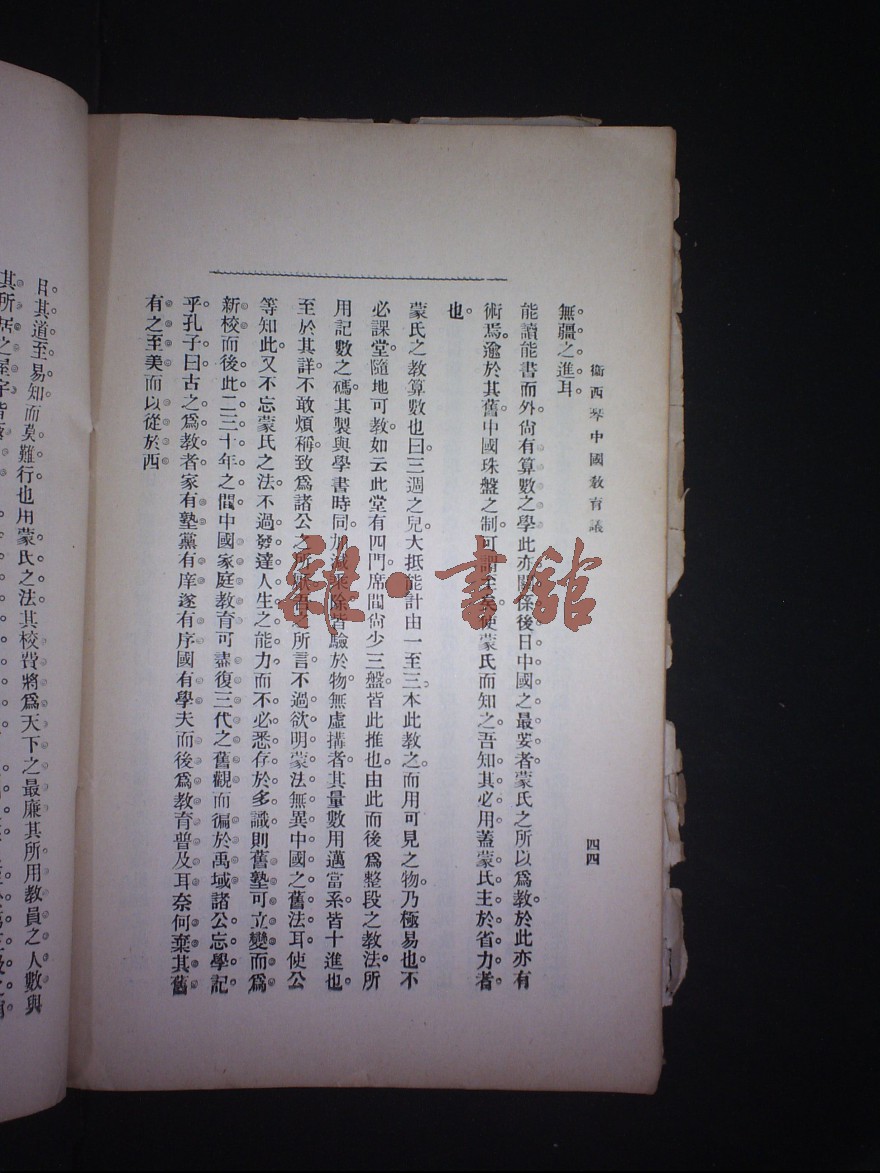 衞西琴中國敎育議
四四
無疆之進耳
能讀能書而外。尙有算數之學。此亦關係後日中國之最要者。蒙氏之所以爲敎於此亦有
術焉。逾於其舊。中國珠盤之制。可謂至矣。使蒙氏而知之。吾知其必用。蓋蒙氏主於省力者
也。
蒙氏之敎算數也。曰三週之兒。大抵能計由一至三。本此敎之。而用可見之物。乃極易也。不
必課堂。隨地可敎。如云此堂有四門。席間尙少三盤。皆此推也。由此而後爲整段之敎法。所
用記數之碼。其製與學書時同。加減乘除。皆驗於物。無虛搆者。其量數用邁當系。皆十進也。
至於其詳。不敢煩稱。致爲諸公之所 之所言。不過欲明蒙法無異中國之舊法耳。使公
等知此。又不忘蒙氏之法。不過發達人生之能力。而不必悉存於多識。則舊塾可立變而爲
新校。而後此二三十年之間。中國家庭敎育。可盡復三代之舊觀。而徧於禹域。諸公忘學記
乎。孔子曰。古之爲敎者。家有塾。黨有庠。遂有序。國有學。夫而後爲敎育普及耳。奈何棄其舊
有之至美而以從於西
曰。其道至易知。而莫難行也。用蒙氏之法。其校費將爲天下之最廉。其所用敎員之人數與
其所居之屋宇皆
雜·書館